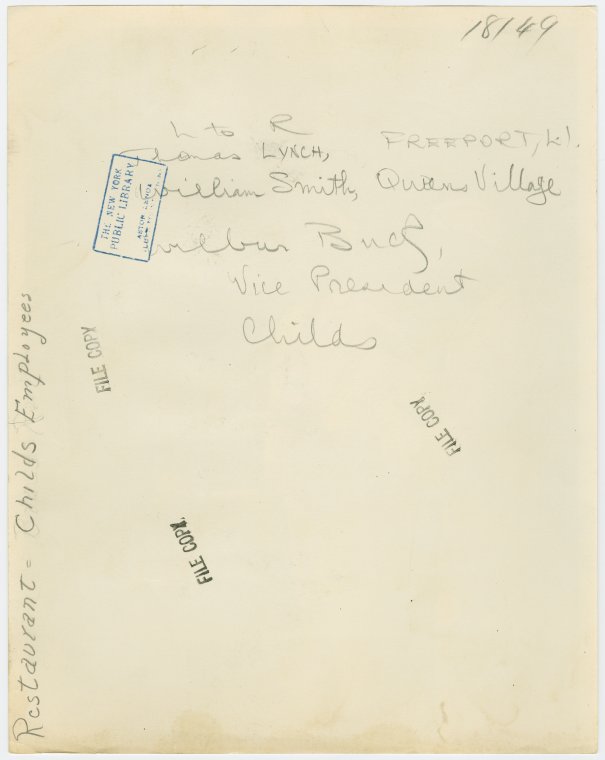 18149
L to R
Thomas LYNCH, FREEPORT, L.I.
William Smith, Queens Village
Wilbur
Vice President
Childs
THE NEW YORK
PUBLIC LIBRARY
ASTOR LENOX
FILE COPY
FILE COPY
FILE COPY
Restaurant = Childs Employees